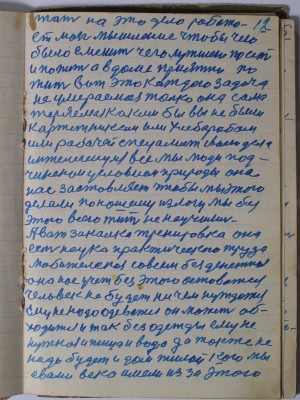 тат на это дело работо- 12
ет моя мышление чтобы чего
было сменит чего лутшего посят
и попит а в доме приятно по
жит Вот это каждого задача
не умераемая только она сама
теряемая каким бы вы не были
картошником или хлебаробом
или рабочай специалист своего дела
инженеру и все мы люди под-
чиненои условиях природы она
нас заставляет чтобы мы этого
делали по нашему из логу мы без
этого всего тит не научились.
А вот закалка тренировка она
ест наука практического труда
любательская совсем без денежная
она нас учит без этого остоватся
человек не будет ни чем нуждатся
ему не надо одеватся он может об-
ходится и так без одежды ему не
нужная и пища и вода да тоже не
надо будет и дом жилой кого мы
свами веко имели из за этого